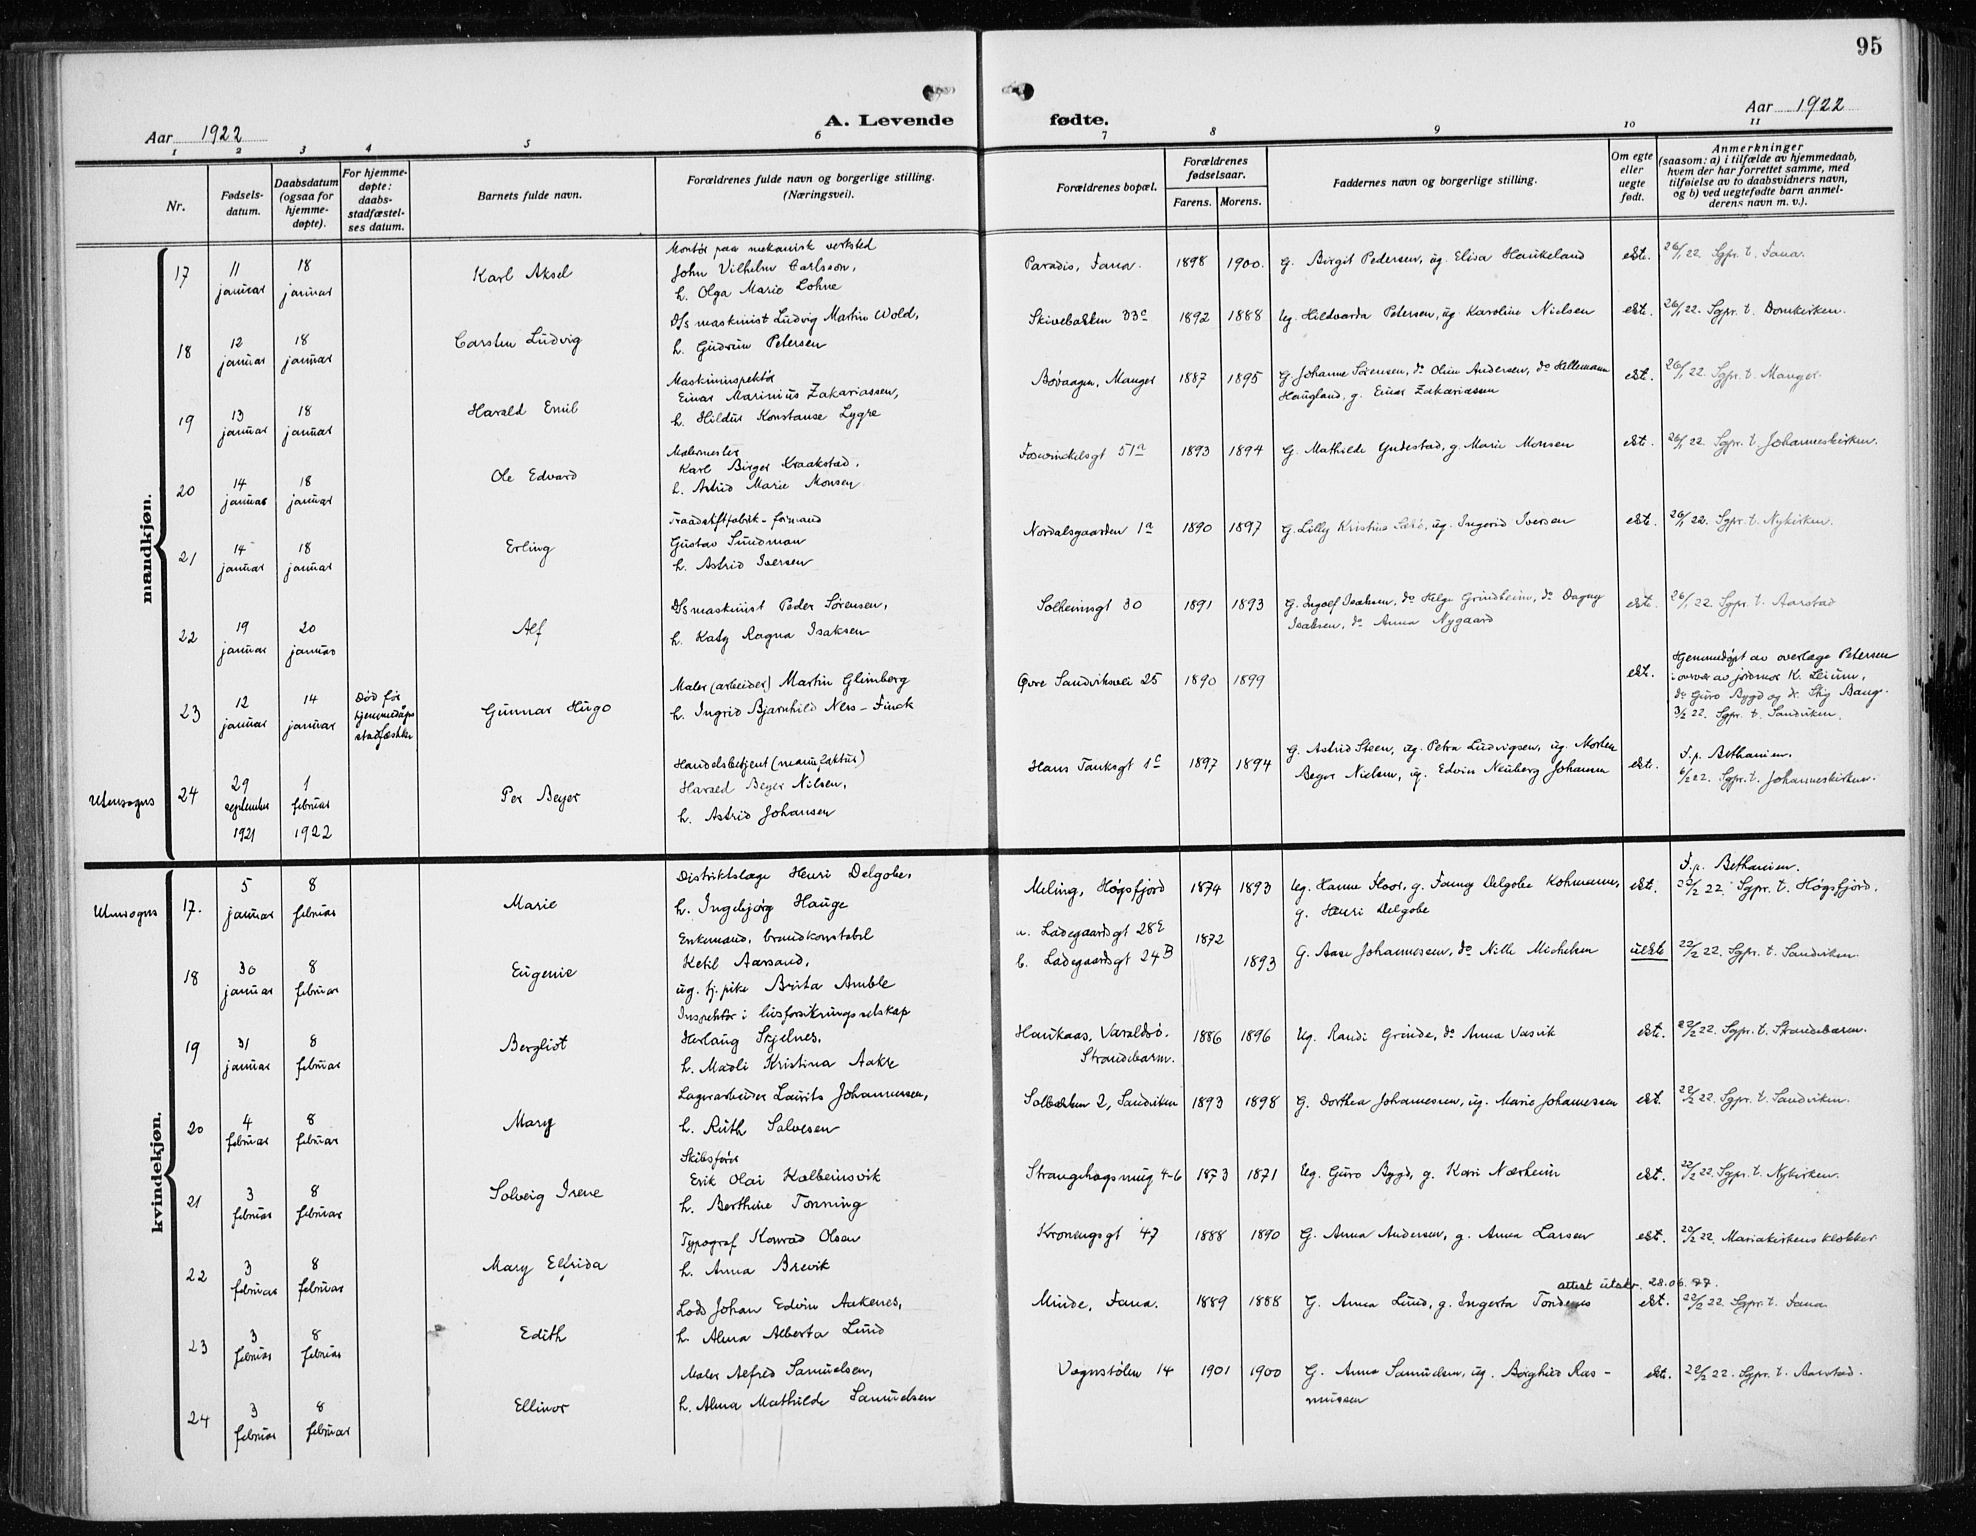 95
Aar 1922
A. Levende fødte.
Aar 1922
1 2 3 4 5 6 7 8 9 10 11
Nr.
Fødsels-
datum.
Daabsdatum
(ogsaa for
hjemme-
døpte).
For hjemme-
døpte:
daabs-
stadfæstel-
ses datum.
Barnets fulde navn.
Forældrenes fulde navn og borgerlige stilling.
(Næringsvei).
Forældrenes bopæl.
Forældrenes
fødselsaar.
Farens. Morens.
Faddernes navn og borgerlige stilling.
Om egte
eller
uegte
født.
Anmerkninger
(saasom: a) i tilfælde av hjemmedaab,
hvem der har forrettet samme, med
tilføielse av to daabsvidners navn,
og b) ved uegtefødte barn anmel-
derens navn m. v.).
mandkjøn.
17
11 januar
18 januar
Karl Aksel
Montør paa mekanisk verksted
John Vilhelm Carlsson,
h. Olga Marie Lohne
Paradis, Fana. 1898 1900. G. Birgit Pedersen, ug. Elisa Haukeland ekte. 26/1 22. Sgpr. t. Fana.
18
12 januar
18 januar
Carsten Ludvig
D/s maskinist Ludvig Martin Wold,
h. Gudrun Petersen
Skivebakken 33c 1892 1888 Ug. Hildvarda Petersen, ug. Karoline Nielsen ekte. 26/1 22. Sgpr. t. Domkirken.
19
13 januar
18 januar
Harald Emil
Maskininspektør
Einar Marinius Zakariassen,
h. Hildur Konstanse Lygre
Bøvaagen, Manger 1887 1895 G. Johanne Sørensen, do Oline Andersen, do Hellemann
Haugland, g. Einar Zakariassen
ekte. 26/1 22. Sgpr. t. Manger.
20
14 januar
18 januar
Ole Edvard
Malermester
Karl Birger Kraakstad,
h. Astrid Marie Monsen
Fosswinckelsgt 51a 1893 1894 G. Mathilde Yndestad, g. Marie Monsen ekte. 26/1 22. Sgpr. t. Johanneskirken.
21
14 januar
18 januar
Erling
Traadstiftfabrik-formand
Gustav Sundman
h. Astrid Iversen
Nordalsgaarden 1a 1890 1897 G. Lilly Kristine ug. Ingerid Iversen ekte. 26/1 22. Sgpr. t. Nykirken.
22
19 januar
20 januar
Alf
D/s maskinist Peder Sørensen,
h. Katy Ragna Isaksen
Solheimsgt 30 1891 1893 G. Ingolf Isaksen, do Helge Grindheim, do Dagny
Isaksen, do Anna Nygaard
ekte. 26/1 22. Sgpr. t. Aarstad
23
12 januar
14 januar
Død før
hjemmedaaps
stadfæstelse
Gunnar Hugo
Maler (arbeider) Martin Glimberg
h. Ingrid Bjarnhild Ness-Finck
Øvre Sandviksvei 25 1890 1899
ekte. Hjemmedøpt av overlæge Petersen
i overvær av jordmor K. Leium,
do Guro Bygd og dr. Stig Bang.
3/2 22. Sgpr. t. Sandviken.
Utensogns
24
29 september 1921
1 februar 1922
Per Beyer
Handelsbetjent (manufaktur)
Harald Beyer Nilsen,
h. Astrid Johansen
Hans Tanksgt 1c 1897 1894 G. Astrid Steen, ug. Petra Ludvigsen, ug. Morten
Beyer Nielsen, ug. Edvin Neuberg Johansen
ekte. F.p. Bethanien.
6/2 22. Sgpr. t. Johanneskirken.
kvindekjøn.
Utensogns
17.
5 januar
8 februar
Marie
Distriktslæge Henri Delgobe,
h. Ingebjørg Hauge
Meling, Høgsfjord 1874 1893 Ug. Hanna Floor, g. Fanny Delgobe
g. Henri Delgobe
ekt. F.p. Bethanien.
22/2 22. Sgpr. t. Høgsfjord.
18
30 januar
8 februar
Eugenie
Enkemand, brandkonstabel
Ketil Aarsand,
ug. tj. pike Brita Amble
a. Ladegaardsgt 28E
b. Ladegaardsgt 24B
1872 1893 G. Aase Johannessen, do Nille Michelsen uekte 22/2 22. Sgpr. t. Sandviken.
19
31 januar
8 februar
Bergliot
Inspektør i livsforsikringsselskap
Herlaug Skjelnes,
h. Madli Kristina Aakre
Haukaas, Varaldsø.
Strandebarm.
1886 1896 Ug. Randi Grinde, do Anna Vasvik ekt. 22/2 22. Sgpr. t. Strandebarm.
20
4 februar
8 februar
Mary
Lagerarbeider Laurits Johannessen,
h. Ruth Salvesen
Solbakken 2, Sandviken 1893 1898 G. Dorthea Johannessen, ug. Marie Johannessen ekt. 22/2 22. Sgpr. t. Sandviken.
21
3 februar
8 februar
Solveig Irene
Skibsfører
Erik Olai Kolbeinsvik
h. Berthine Tonning
Strangehagsmug 4-6 1873 1871 Ug. Guro Bygd, g. Kari Nærheim ekt. 22/2 22. Sgpr. t. Nykirken.
22
3 februar
8 februar
Mary Elfrida
Typograf Konrad Olsen
h. Anna Brevik
Kronengsgt 47 1888 1890 G. Anna Andersen, g. Anna Larsen ekt. 20/2 22. Mariakirkens klokker.
attest utskr. 28.06.77.
23
3 februar
8 februar
Edith
Lods Johan Edvin Aakenes,
h. Alma Alberta Lund
Minde, Fana. 1889 1888 G. Anna Lund, g. Ingerta Tondenes ekt. 22/2 22. Sgpr. t. Fana
24
3 februar
8 februar
Ellinor
Maler Alfred Samuelsen,
h. Alma Mathilde Samuelsen
Vognstølen 14 1901 1900 G. Anna Samuelsen, ug. Borghild Ras-
mussen
ekte. 22/2 22. Sgpr. t. Aarstad.